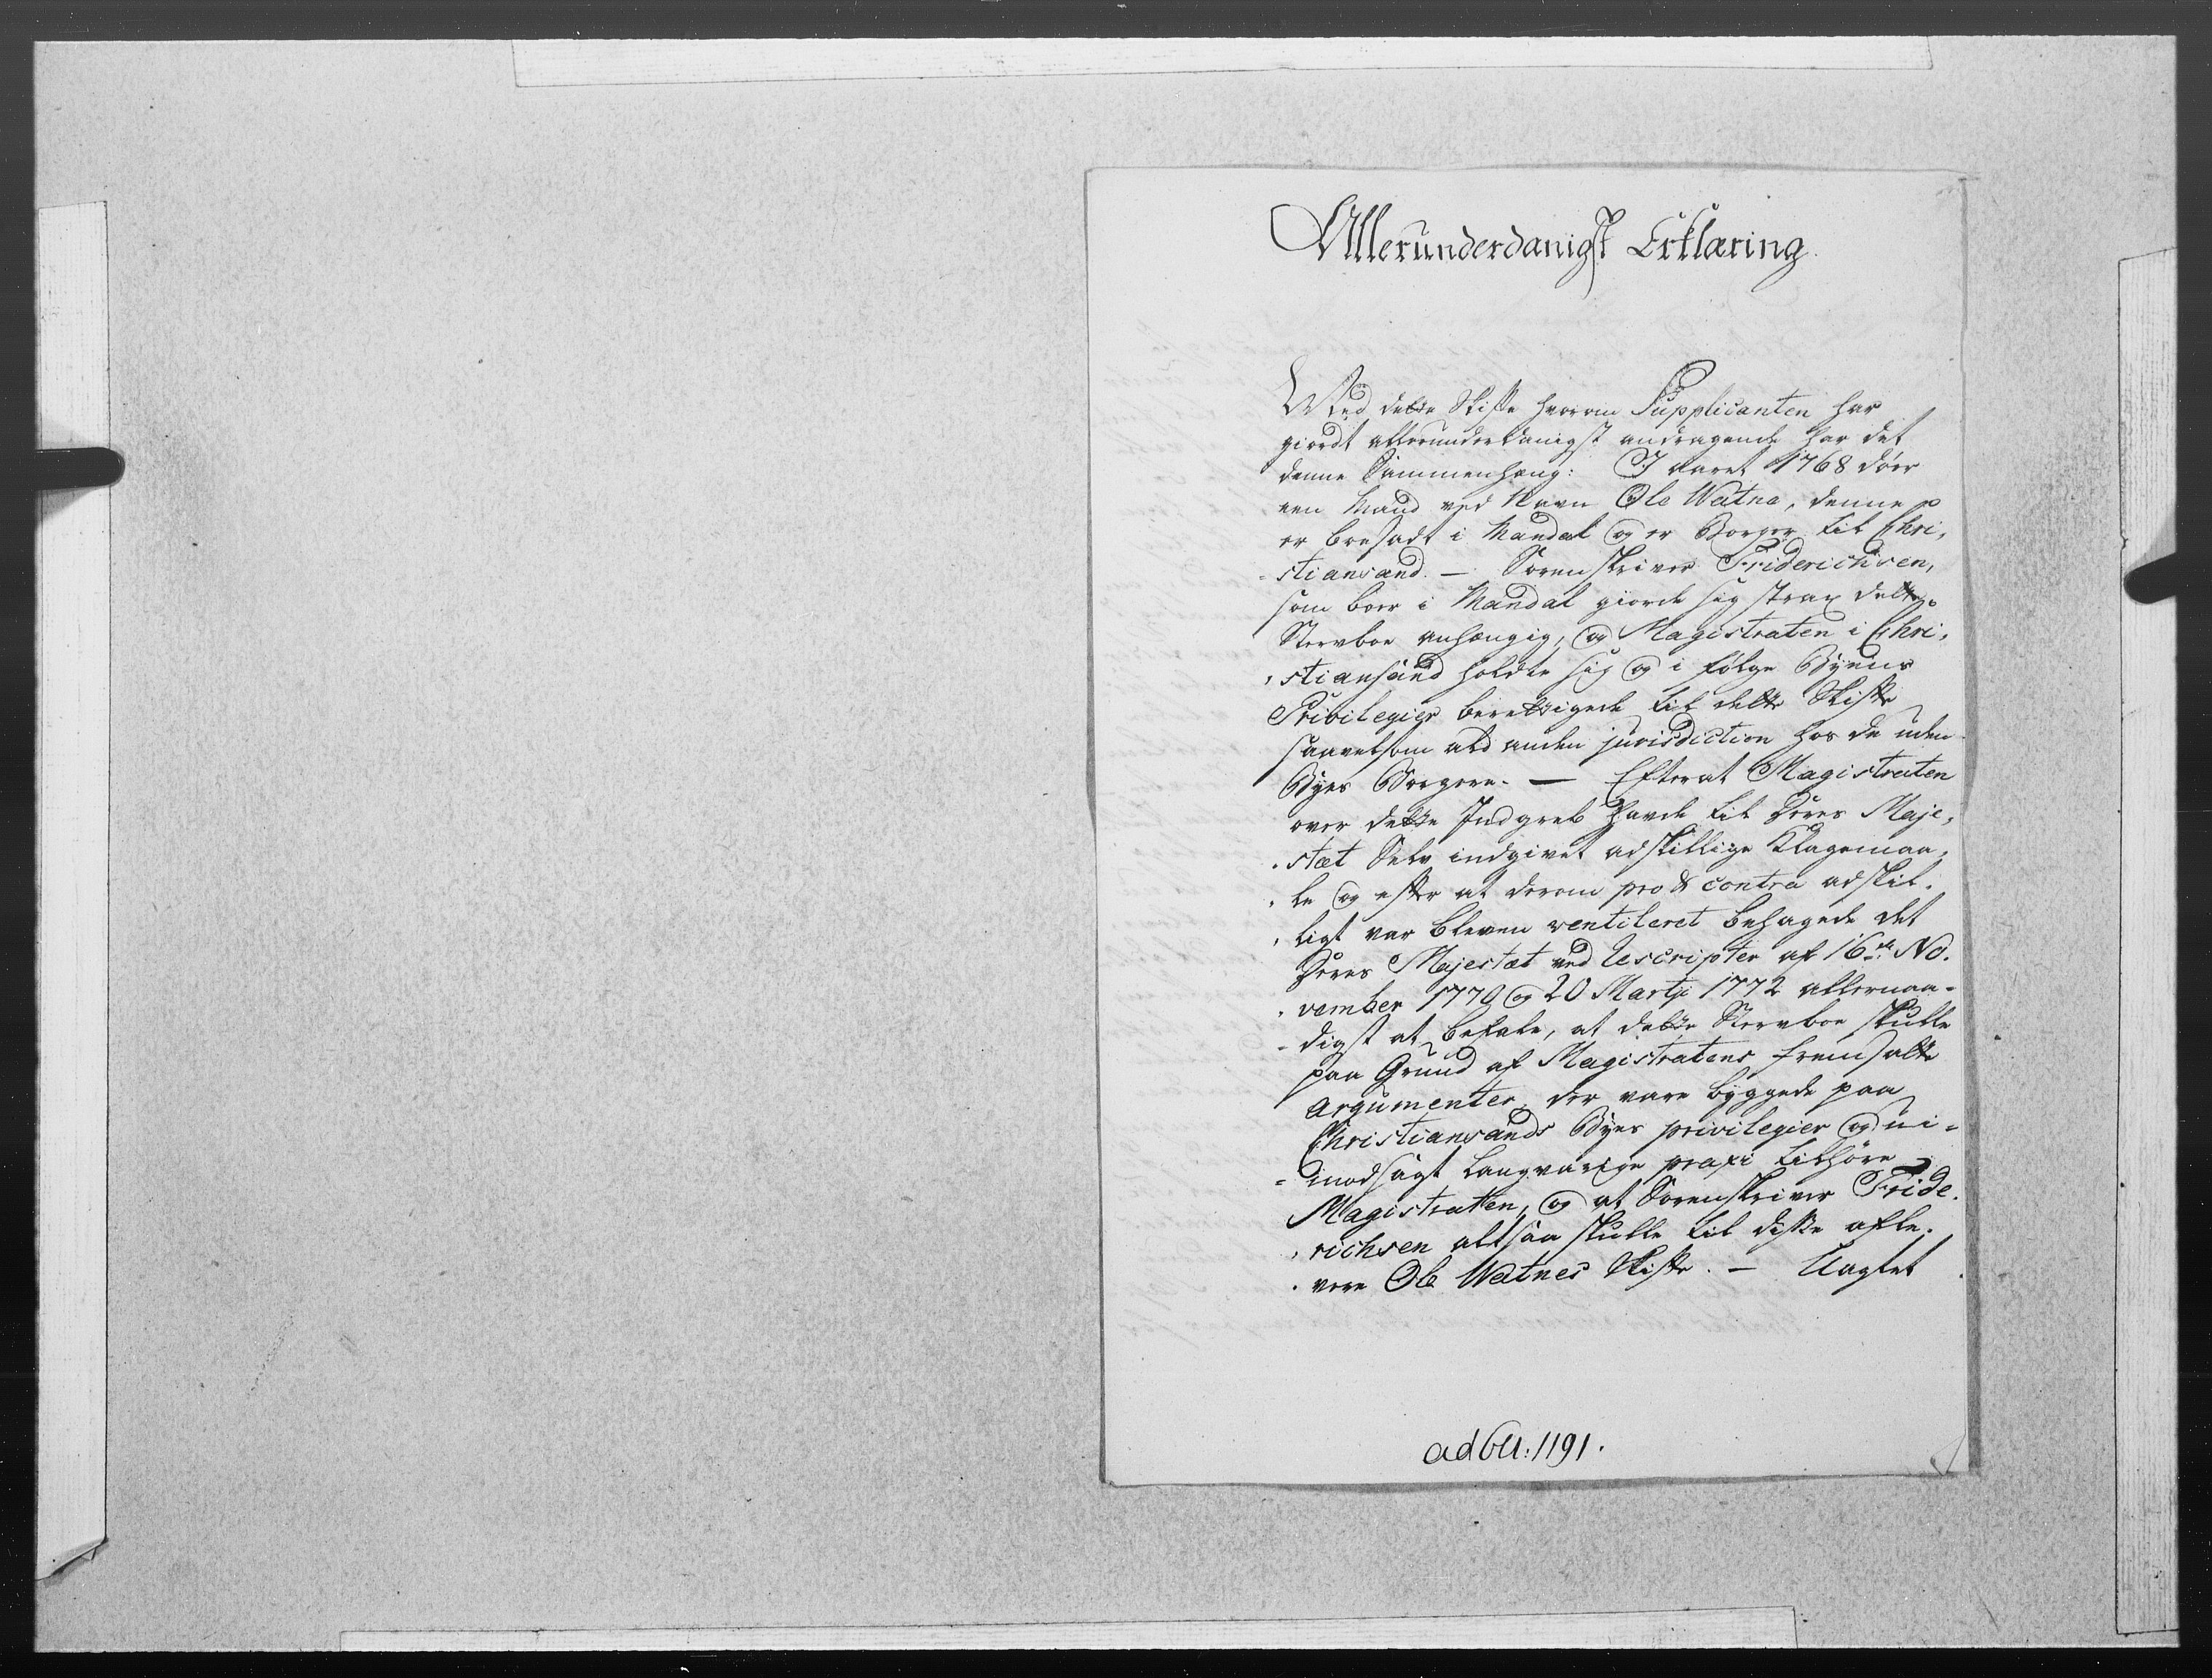 Allerunderdanigst Erklæring.
Med dette Skifte hvorom Supplicanten har
giordt allerunderdanigst andragende har det
denne Sammenhæng: I Aaret 1768 döer
een Mand ved Navn Ole Watne, denne
er boesadt i Mandal og er Borger til Chri,
-stiansand. — Sorenskriver Friderichsen,
som boer i Mandal giorde sig strax dette
Stervboe anhængig, og Magistraten i Chri,
,stiansand holdte sig og i følge Byens
Privilegier berettigede til dette Skifte
saavelsom ald anden jurisdiction hos de uden
Byes Borgere. — Efterat Magistraten
over dette Indgreb havde til Deres Maje,
.stæt Selv indgivet adskillige Klagemaa,
,le og efter at derom pro & contra adskil.
,ligt var bleven ventileret behagede det
Deres Majestæt ved Rescripter af 16de No.
,vember 1770 og 20 Martji 1772 allernaa-
-digst at befale, at dette Stervboe skulle
paa Grund af Magistratens fremsatte
Argumenter, der vare byggede paa
Christiansands Byes privilegier og ui-
=imodsagt langvarige praxi tilhöre
Magistraten, og at Sorenskriver Fride.
,richsen altsaa skulle til diste afle.
.vere Ole Watnes Skifte. — Uagtet
ad 611:1191.